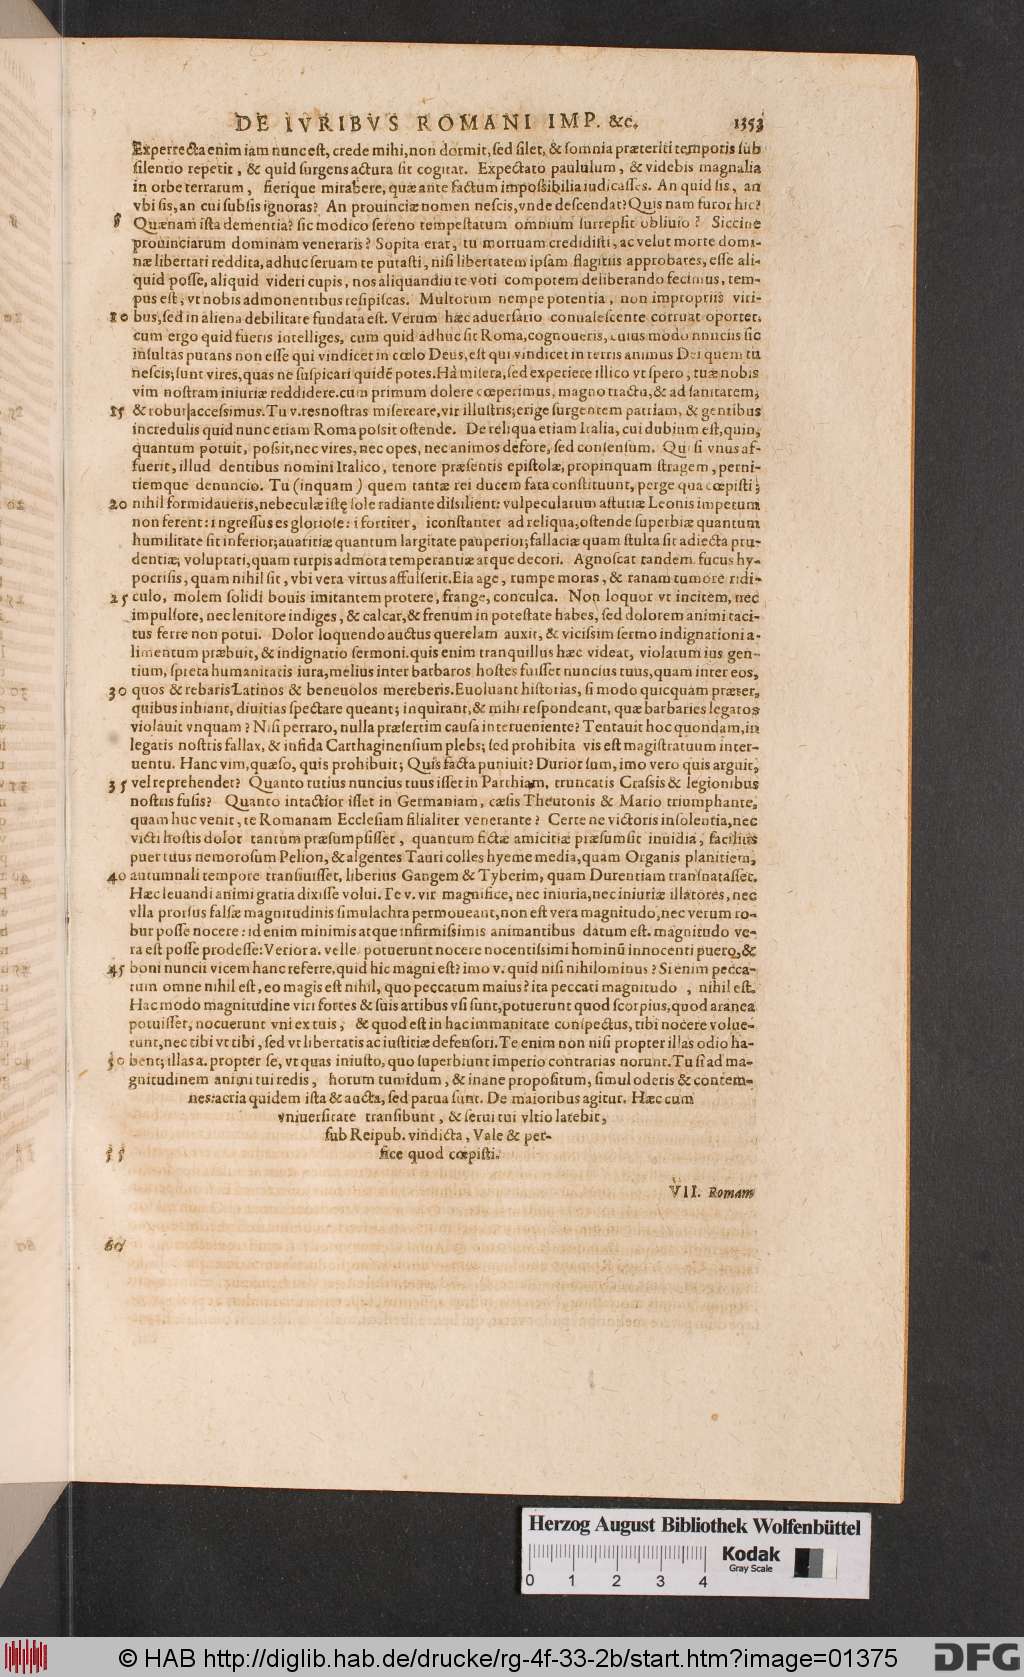 DE IVRIBVS ROMANI IMP. &c. 1353
Experrecta enim iam nunc est, crede mihi, non dormit, sed silet, & somnia præteriti temporis sub
silentio repetit, & quid surgens actura sit cogitat. Expectato paululum, & videbis magnalia
in orbe terrarum, fierique mirabere, quæ ante factum impossibilia iudicasses. An quid sis, an
vbi sis, an cui subsis ignoras? An prouinciæ nomen nescis, vnde descendat? Quis nam furor hic?
5 Quænam ista dementia? sic modico sereno tempestatum omnium surrepsit obliuio? Siccine
prouinciarum dominam veneraris? Sopita erat, tu mortuam credidisti, ac velut morte domi-
næ libertati reddita, adhuc seruam te putasti, nisi libertatem ipsam flagitiis approbares, esse ali-
quid posse, aliquid videri cupis, nos aliquandiu te voti compotem deliberando fecimus, tem-
pus est, vt nobis admonentibus resipiscas. Multorum nempe potentia, non impropriis viri-
10 bus, sed in aliena debilitate fundata est. Verum hæc aduersario conualescente corruat oportet.
cum ergo quid fueris intelliges, cum quid adhuc sit Roma, cognoueris, cuius modo nunciis sic
insultas putans non esse qui vindicet in cœlo Deus, est qui vindicet in terris animus Dei quem tu
nescis; sunt vires, quas ne suspicari quidē potes. Ha misera, sed experiere illico vt spero, tuæ nobis
vim nostram iniuriæ reddidere. cum primum dolere cœperimus, magno tractu, & ad sanitatem,
15 & robur accessimus. Tu v. res nostras miserare, vir illustris; erige surgentem patriam, & gentibus
incredulis quid nunc etiam Roma possit ostende. De reliqua etiam Italia, cui dubium est, quin,
quantum potuit, possit, nec vires, nec opes, nec animos defore, sed consensum. Qui si vnus af-
fuerit, illud dentibus nomini Italico, tenore præsentis epistolæ, propinquam stragem, perni-
tiemque denuncio. Tu (inquam) quem tantæ rei ducem fata constituunt, perge qua cœpisti;
20 nihil formidaueris, nebeculæ istę sole radiante dissilient: vulpecularum astutiæ Leonis impetum
non ferent: ingressus es gloriose: i fortiter, i constanter ad reliqua, ostende superbiæ quantum
humilitate sit inferior; auaritiæ quantum largitate pauperior; fallaciæ quam stulta sit adiecta pru-
dentiæ; voluptati, quam turpis admota temperantiæ atque decori. Agnoscat tandem fucus hy-
pocrisis, quam nihil sit, vbi vera virtus affulserit. Eia age, rumpe moras, & ranam tumore ridi-
25 culo, molem solidi bouis imitantem protere, frange, conculca. Non loquor vt incitem, nec
impulsore, nec lenitore indiges, & calcar, & frenum in potestate habes, sed dolorem animi taci-
tus ferre non potui. Dolor loquendo auctus querelam auxit, & vicissim sermo indignationi a-
limentum præbuit, & indignatio sermoni. quis enim tranquillus hæc videat, violatum ius gen-
tium, spreta humanitatis iura, melius inter barbaros hostes fuisset nuncius tuus, quam inter eos,
30 quos & rebaris Latinos & beneuolos mereberis. Euoluant historias, si modo quicquam præter,
quibus inhiant, diuitias spectare queant; inquirant, & mihi respondeant, quæ barbaries legatos
violauit vnquam? Nisi perraro, nulla præsertim causa interueniente? Tentauit hoc quondam, in
legatis nostris fallax, & infida Carthaginensium plebs; sed prohibita vis est magistratuum inter-
uentu. Hanc vim, quæso, quis prohibuit; Quis facta puniuit? Durior sum, imo vero quis arguit,
35 vel reprehendet? Quanto tutius nuncius tuus isset in Parthiam, truncatis Crassis & legionibus
nostris fusis? Quanto intactior isset in Germaniam, cæsis Theutonis & Mario triumphante,
quam huc venit, te Romanam Ecclesiam filialiter venerante? Certe ne victoris insolentia, nec
victi hostis dolor tantum præsumpsisset, quantum fictæ amicitiæ præsumsit inuidia, facilius
puer tuus nemorosum Pelion, & algentes Tauri colles hyeme media, quam Organis planitiem,
40 autumnali tempore transiuisset, liberius Gangem & Tyberim, quam Durentiam transnatasset.
Hæc leuandi animi gratia dixisse volui. Te v. vir magnifice, nec iniuria, nec iniuriæ illatores, nec
vlla prorsus falsæ magnitudinis simulachra permoueant, non est vera magnitudo, nec verum ro-
bur posse nocere: id enim minimis atque infirmissimis animantibus datum est. magnitudo ve-
ra est posse prodesse: Verior a. velle. potuerunt nocere nocentissimi hominū innocenti puero, &
45 boni nuncii vicem hanc referre, quid hic magni est? imo v. quid nisi nihilominus? Si enim pecca-
tum omne nihil est, eo magis est nihil, quo peccatum maius? ita peccati magnitudo, nihil est.
Hac modo magnitudine viri fortes & suis artibus vsi sunt, potuerunt quod scorpius, quod aranea
potuisset, nocuerunt vni ex tuis, & quod est in hac immanitate conspectus, tibi nocere volue-
runt, nec tibi vt tibi, sed vt libertatis ac iustitiæ defensori. Te enim non nisi propter illas odio ha-
50 bent; illas a. propter se, vt quas iniusto, quo superbiunt imperio contrarias norunt. Tu si ad ma-
gnitudinem animi tui redis, horum tumidum, & inane propositum, simul oderis & contem-
nes: acria quidem ista & aucta, sed parua sunt. De maioribus agitur. Hæc cum
vniuersitate transibunt, & serui tui vltio latebit,
sub Reipub. vindicta, Vale & per-
55 fice quod cœpisti.
VII. Romam
60
Herzog August Bibliothek Wolfenbüttel
0 1 2 3 4
Kodak
Gray Scale
© HAB http://diglib.hab.de/drucke/rg-4f-33-2b/start.htm?image=01375
DFG